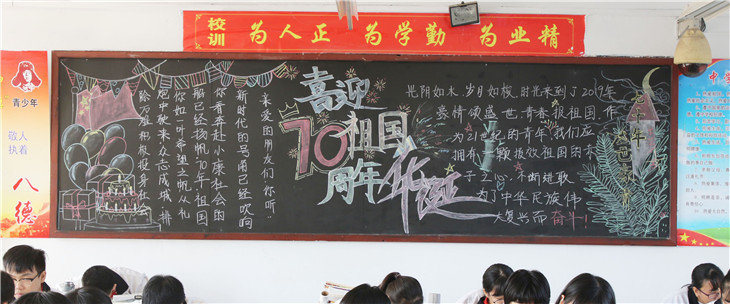 校训 为人正 为学勤 为业精
青少年
敬人
执着
八德
亲爱的朋友们 你听
新时代的号角已经吹响
你看奔赴小康社会的
船已经扬帆70年祖国
你如一叶希望之帆从
炮中驶来众志成城
积极投身社会
喜迎
70祖国
周年华诞
光阴如水,岁月如梭,时光来到了2019年
豪情颂盛世,青春报祖国,作
为21世纪的青年,我们应
拥有一颗报效祖国的赤
子之心,不断进取
为了中华民族伟
大复兴而奋斗!